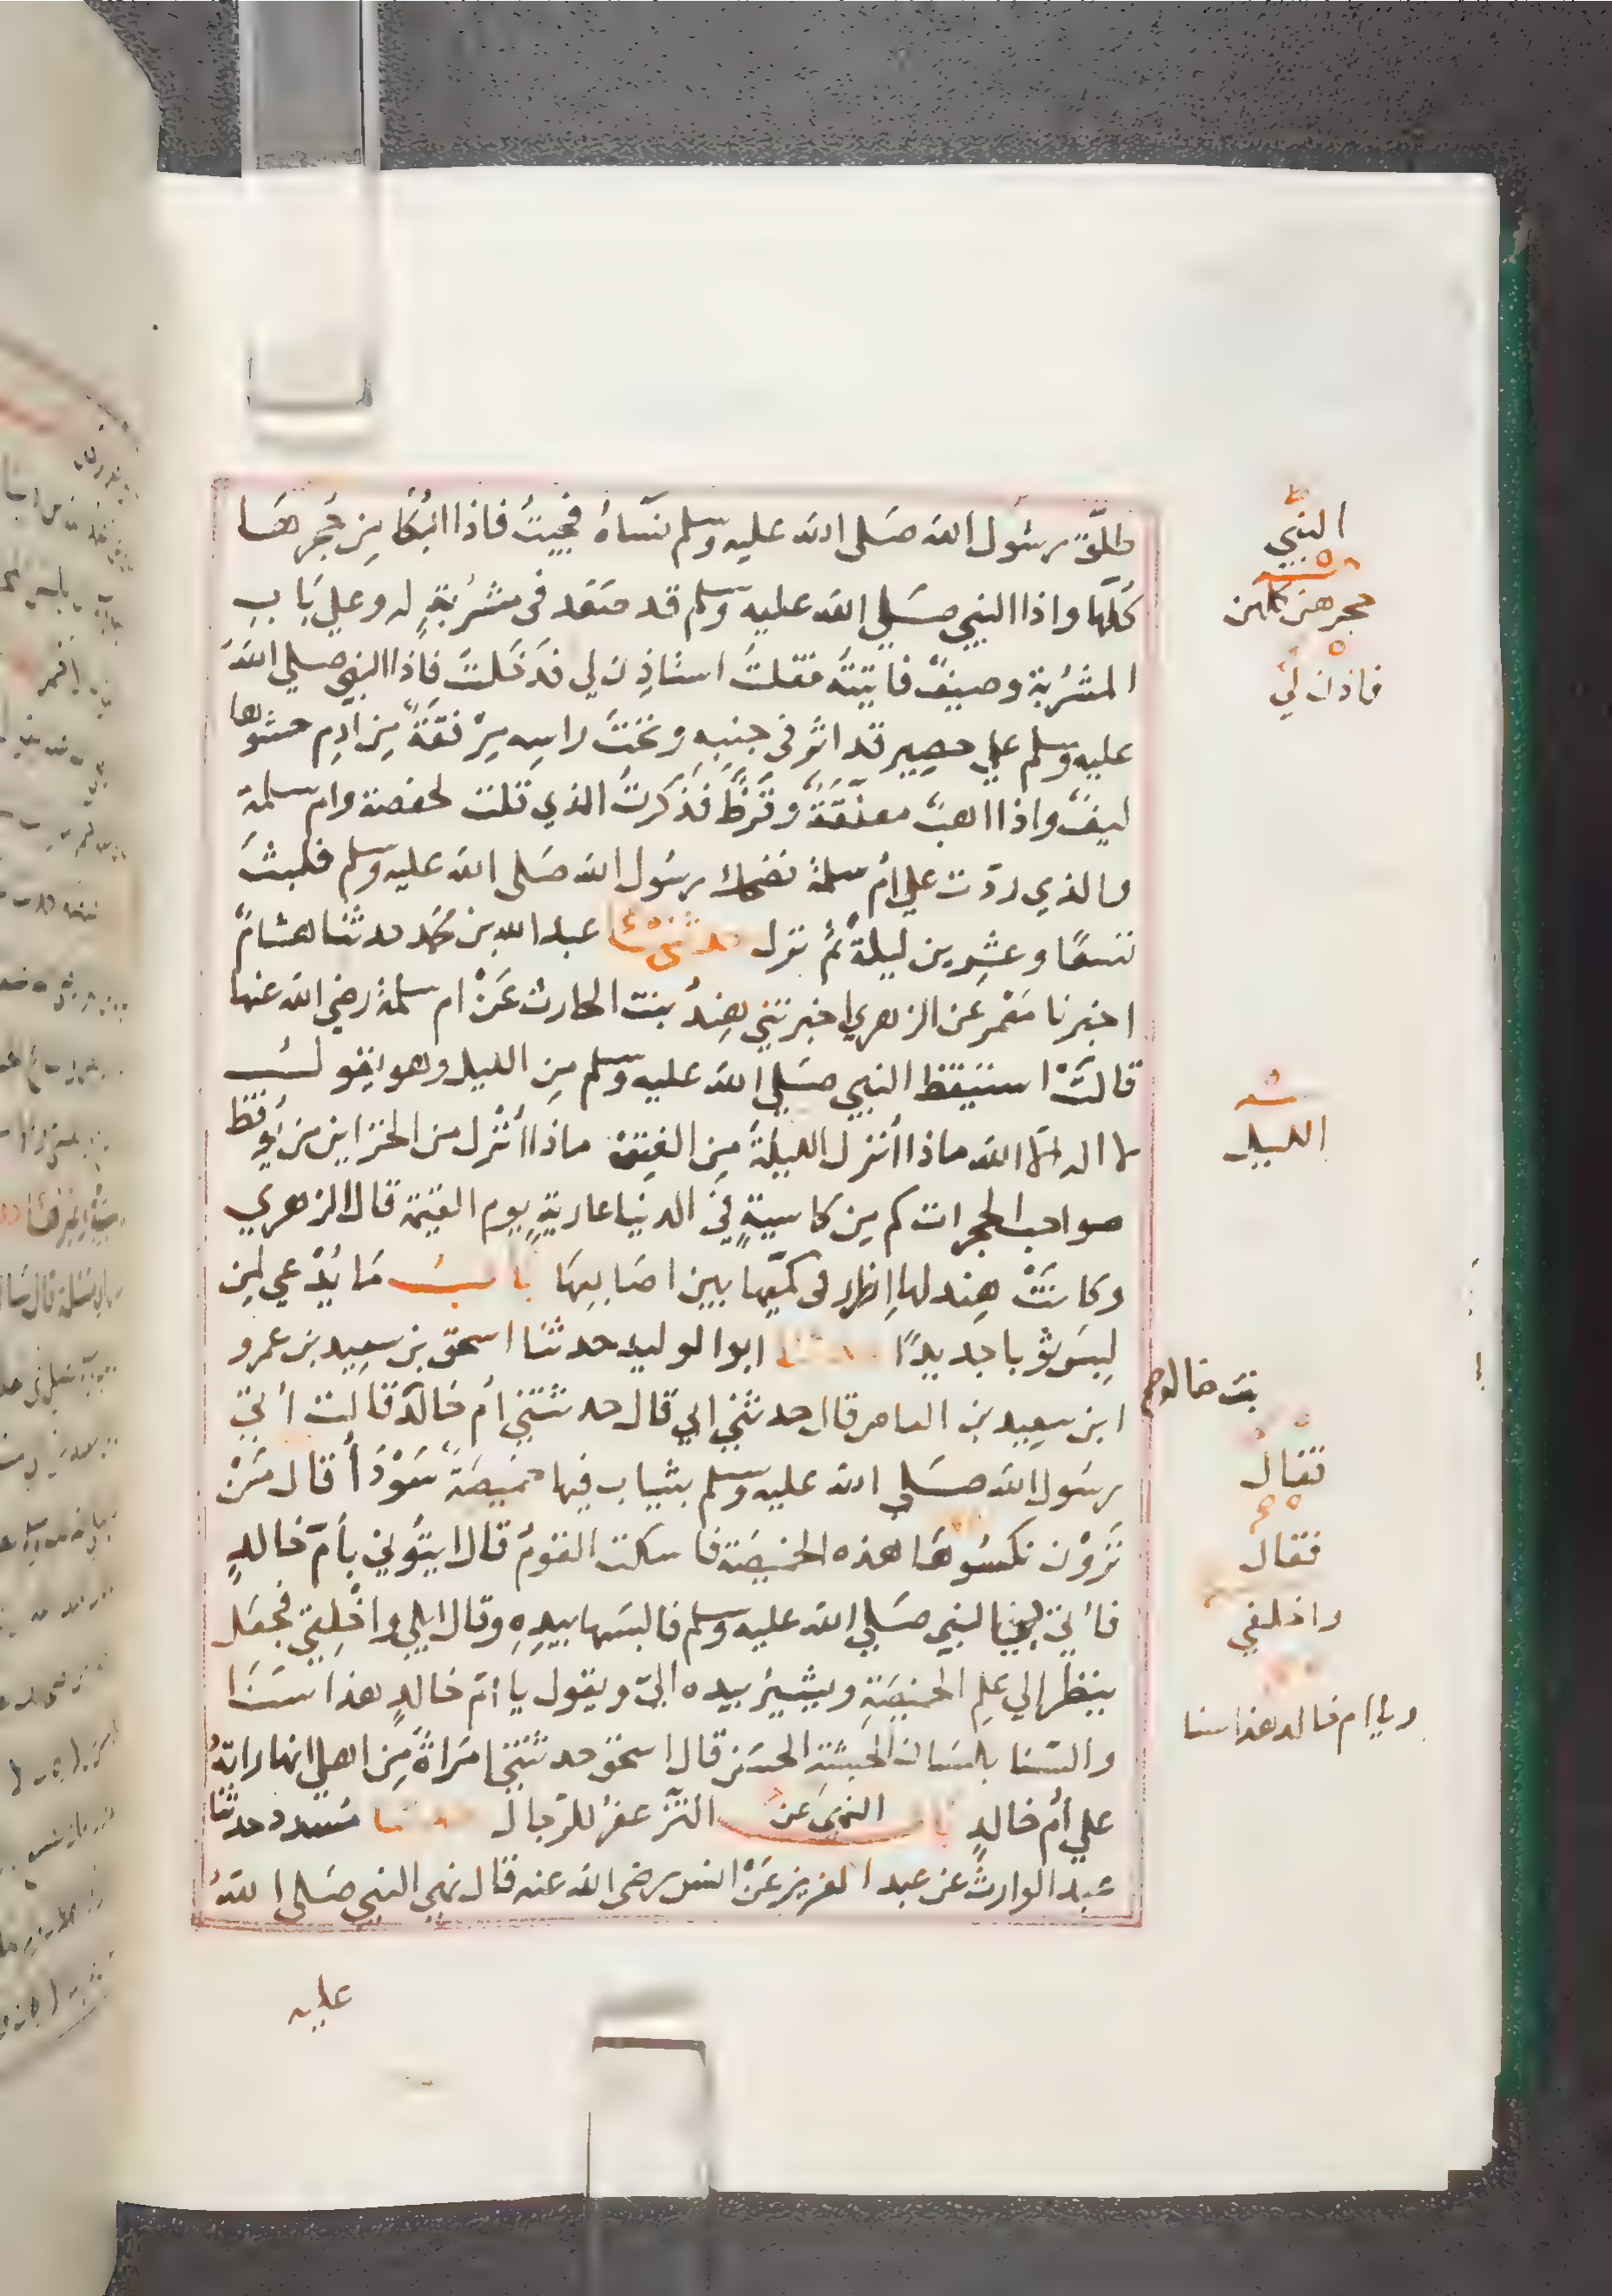 طلّق رسُول الله صَلى الله عليه وسلم نسَآءهُ فجيتُ فاذا البُكا مِن حُجَرِهَا
كُلّها واذا النبي صَلي الله عليه وسلم قد صَعَد فى مشرُبةٍ له وعلي بَابِ
المشرُبة وصيفٌ فاتيتُه فقلتُ استاذِن لي فدَخَلتُ فاذا النبي صلي اللهُ
عليه وسلم علي حصِيرٍ قد اثّر فى جنبِهِ وتحتَ راسِه مِرْفقَةٌ مِن ادم حشوها
ليفٌ واذا اهبٌ معلّقَةٌ وقَرَظٌ فذكَرتُ الذي قلت لحفصة وام سلمة
والذي ردّت علي أمُ سلمة فضحك رسُول الله صَلى الله عليه وسلم فلبثَ
تسعًا وعشرِين ليلةً ثُم نزل حدثنى عبد الله بن محُمد حدثنا هشامٌ
اخبرنا مَعْمر عن الزهري اخبرتني هِندُ بنت الحارث عَنْ ام سلمة رضي الله عنها
قالتْ استيقظ النبي صَلي الله عليه وسلم مِن الليل وهو يقولُ
لا اله الا الله ماذا أُنزل الليلةَ مِن الفِتن ماذا أُنْزل من الخزاين من يُوقظُ
صواحب الحجرات كم مِن كاسيةٍ فِي الدنيا عاريةٍ يوم القيمة قال الزهري
وكانتْ هِند لها اِزرار فى كمّيها بين اصَابِعِهَا باب مَا يُدْعي لمِن
لبِسَ ثوبا جديدًا حدثنا ابو الوليد حدثنا اسحق بن سعِيد بن عمرو
ابن سعِيد بن العاص قال حدثني ابي قال حدثتني أم خالد قالت أُتِيَ
رسُول الله صَلي الله عليه وسلم بثياب فيها خَميصَةٌ سَوْدَأ قال مَنْ
تَرَوْن نكسُوهَا هذه الخميصَة فاسكت القومُ قال ايتُونِي بأمّ خالدٍ
فأُتِيَ بِيَ النبي صَلي الله عليه وسلم فالبسَها بيدِهِ وقال ابلي واخْلِقي فجعَل
ينظر الي علم الخميصَةِ ويشيرُ بيده اليّ ويقول يا امّ خالدٍ هذا سَنَا
والسّنا بلسَان الحبشة الحسَن قال اسحق حدثتني امرَاةٌ مِن اهلي انها راتهُ
علي أم خالدٍ باب النهي عن التّزعفرُ للرّجال حدثنا مُسدد حدثنا
عبد الوارث عن عبد العزيز عَنْ انس رضى الله عنه قال نهي النبي صَلى اللهُ
عليه
النبيّ
حجرهن كلهن
فاذن لي
الليل
بنت خالد
فقال
فقال
واخلفي
ويا ام خالد هذا سنا